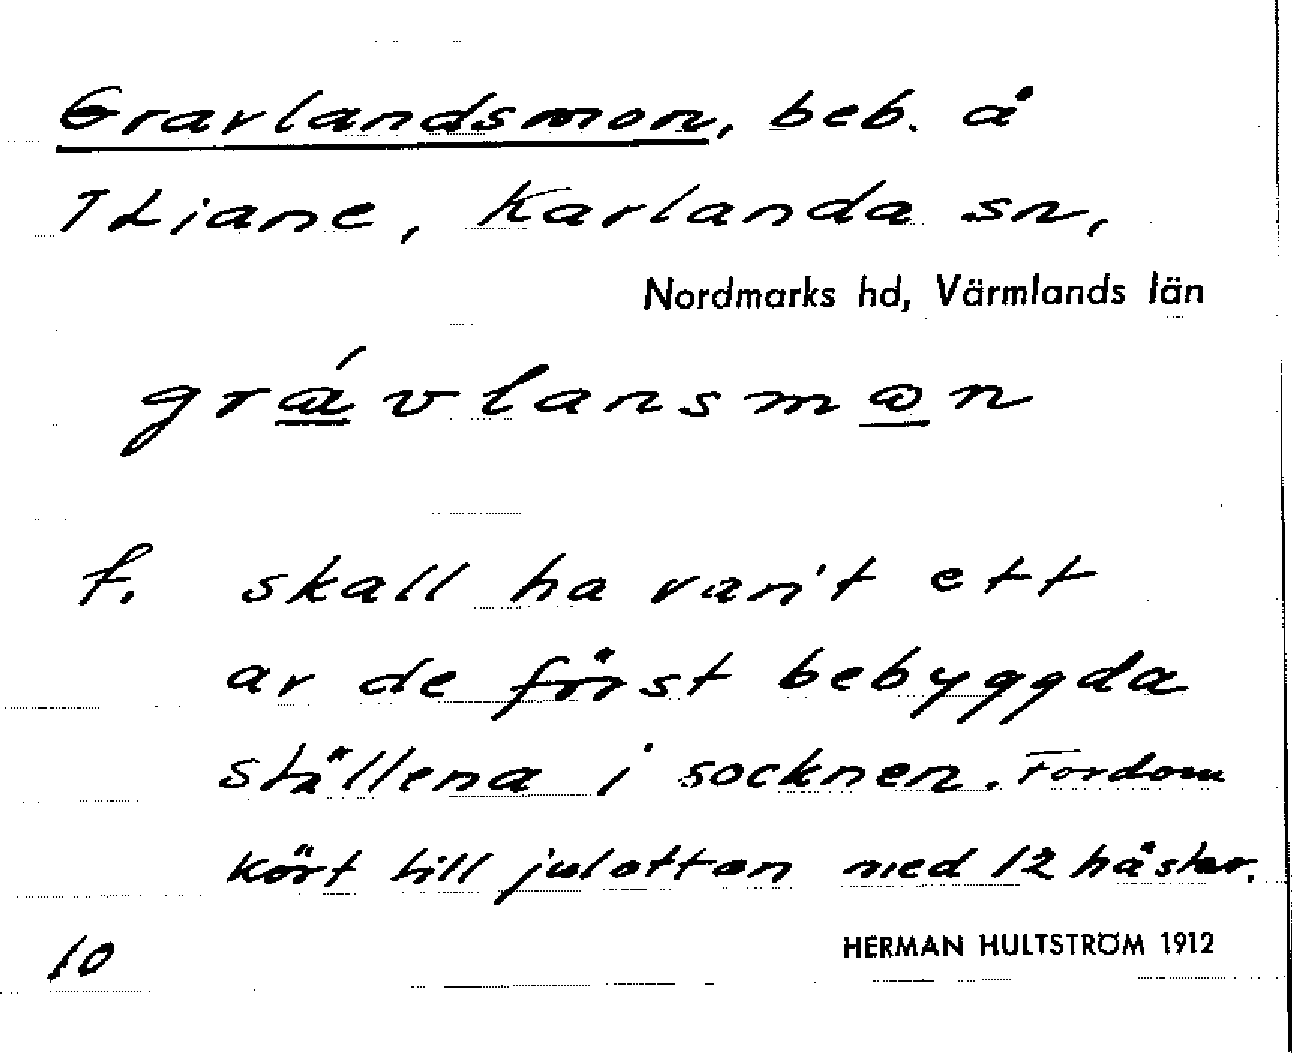 Gravlandsmon, beb. å
1 Liane, Karlanda sn,
Nordmarks hd, Värmlands län
grávlansmon
f. skall ha varit ett
av de först bebyggda
ställena i socknen. Fordom
kört till julottan med 12 hästar.
10
HERMAN HULTSTRÖM 1912